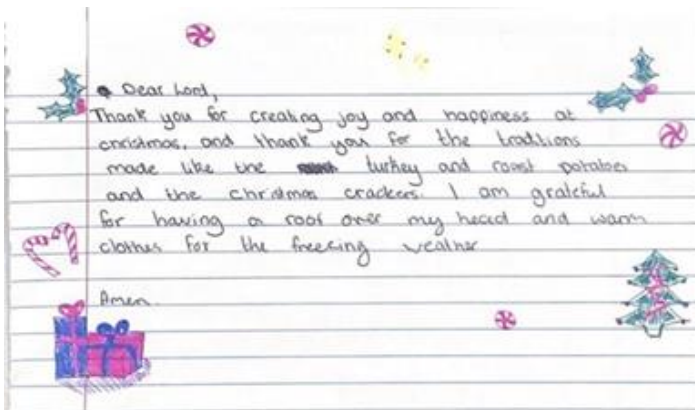 Dear Lord,
Thank you for creating joy and happiness at
christmas, and thank you for the traditions
made like the turkey and roast potatoes
and the christmas crackers. I am grateful
for having a roof over my head and warm
clothes for the freezing weather
Amen.